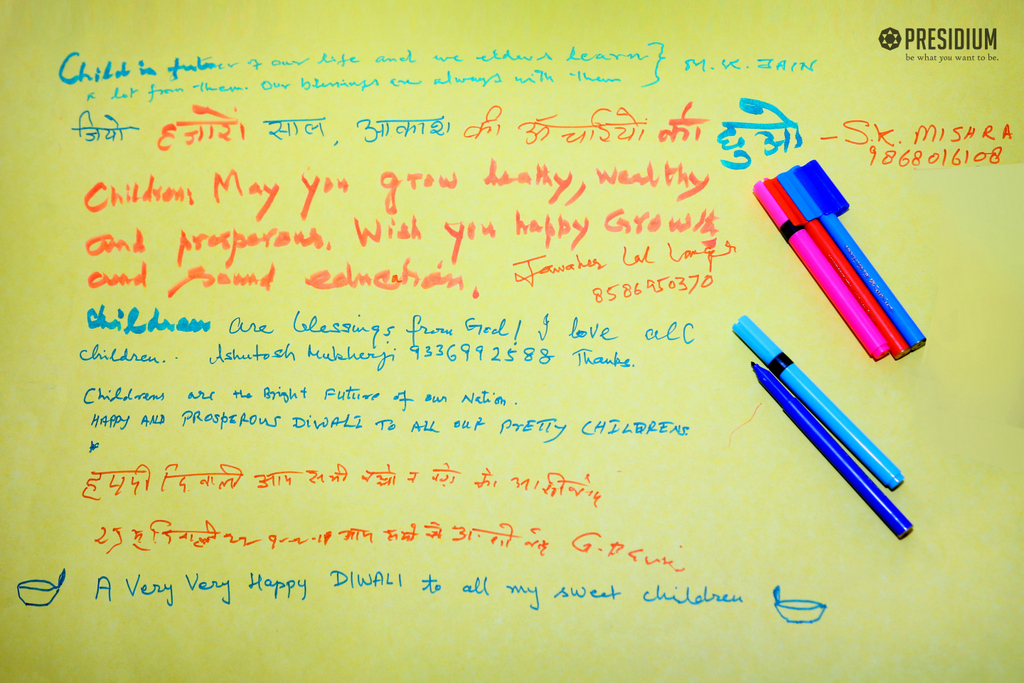 PRESIDIUM
be what you want to be.
Child is future of our life and we elders learn } M.K. JAIN
a lot from them. Our blessings are always with them
जियो हजारों साल, आकाश की ऊँचाईयों को छुओ – S.K. MISHRA
9868016108
Children, May you grow healthy, wealthy
and prosperous. Wish you happy Growth
and sound education.
Jawaher Lal
8586950370
Children are blessings from God! I love all
children.. Ashutosh Mukherji 9336992588 Thanks.
Childrens are the Bright Future of our Nation.
HAPPY AND PROSPEROUS DIWALI TO ALL OUR PRETTY CHILDRENS.
दिवाली आप सभी को
आप सभी
A Very Very Happy DIWALI to all my sweet children